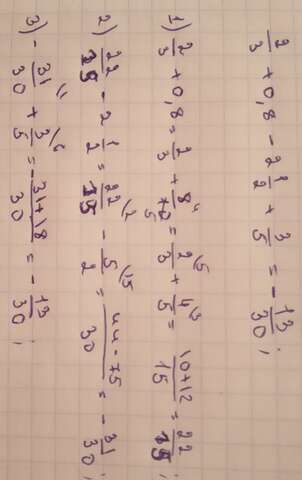 2/3 + 0,8 - 2 1/2 + 3/5 = - 13/30 ;
1) 2/3 + 0,8 = 2/3 + 8/10 = 2/3 \5 + 4/5 \3 = (10+12)/15 = 22/15
2) 22/15 - 2 1/2 = 22/15 \2 - 5/2 \15 = (44-75)/30 = - 31/30 ;
3) - 31/30 \1 + 3/5 \6 = (-31+18)/30 = - 13/30 ;